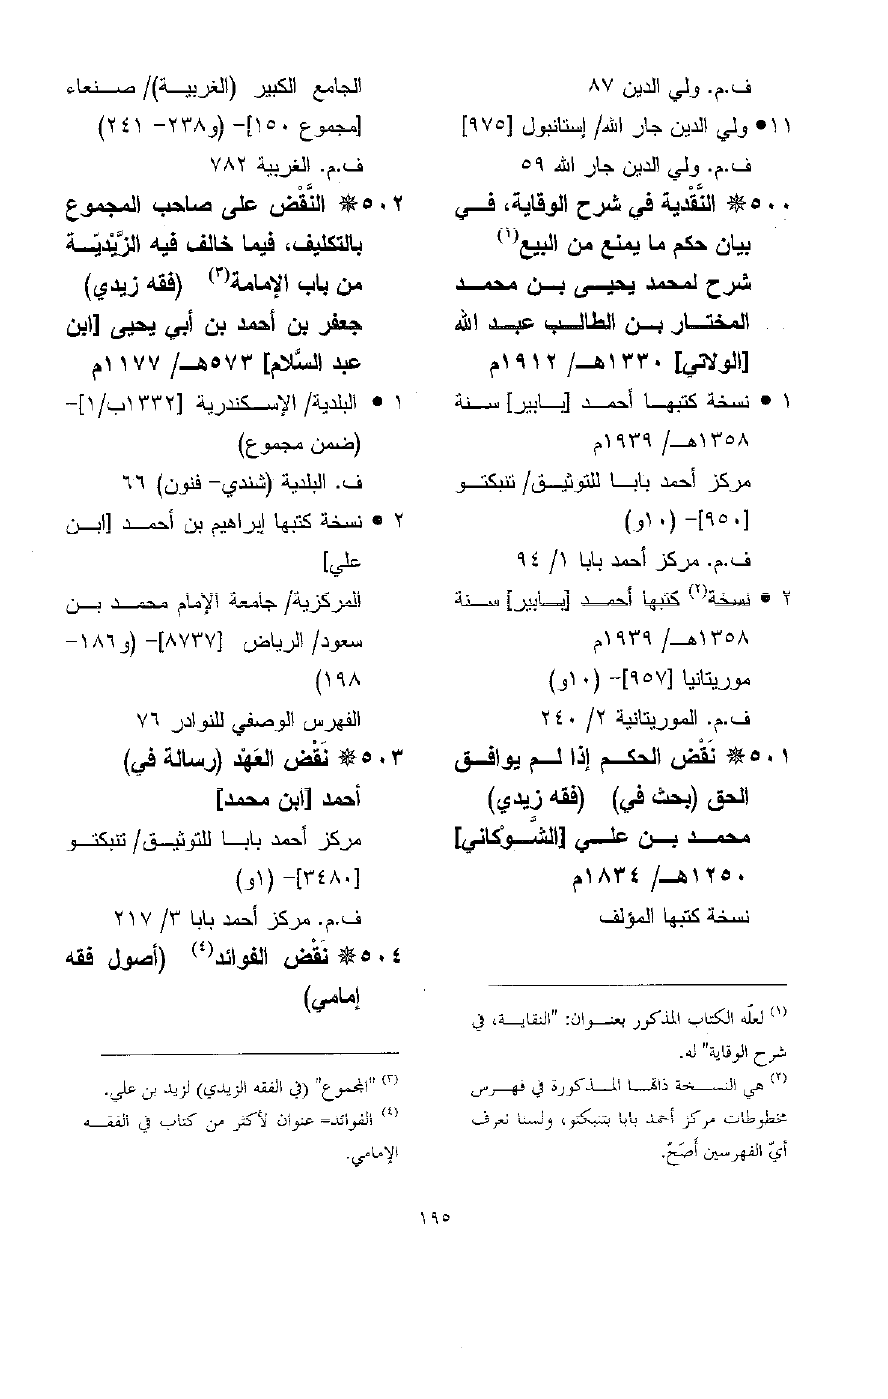 ف.م. ولي الدين ٨٧
١١• ولي الدين جار الله/ إستانبول [٩٧٥]
ف.م. ولي الدين جار الله ٥٩
٥٠٠* النَّقْدية في شرح الوقاية، في
بيان حكم ما يمنع من البيع(١)
شرح لمحمد يحيى بن محمد
المختار بن الطالب عبد الله
[الولاتي] ١٣٣٠هـ/ ١٩١٢م
١ • نسخة كتبها أحمد [يابير] سنة
١٣٥٨هـ/ ١٩٣٩م
مركز أحمد بابا للتوثيق/ تنبكتو
[٩٥٠]- (١٠و)
ف.م. مركز أحمد بابا ١/ ٩٤
٢ • نسخة(٢) كتبها أحمد [يابير] سنة
١٣٥٨هـ/ ١٩٣٩م
موريتانيا [٩٥٧]- (١٠و)
ف.م. الموريتانية ٢/ ٢٤٠
٥٠١* نَقْض الحكم إذا لم يوافق
الحق (بحث في) (فقه زيدي)
محمد بن علي [الشَّوكاني]
١٢٥٠هـ/ ١٨٣٤م
نسخة كتبها المؤلف
(١) لعلّه الكتاب المذكور بعنوان: "النقاية، في
شرح الوقاية" له.
(٢) هي النسخة ذاتها المذكورة في فهرس
مخطوطات مركز أحمد بابا بتنبكتو، ولسنا نعرف
أيّ الفهرسين أَصَحّ.
الجامع الكبير (الغربية)/ صنعاء
[مجموع ١٥٠]- (و٢٣٨- ٢٤١)
ف.م. الغربية ٧٨٢
٥٠٢* النَّقْض على صاحب المجموع
بالتكليف، فيما خالف فيه الزَّيْديّة
من باب الإمامة(٣) (فقه زيدي)
جعفر بن أحمد بن أبي يحيى [ابن
عبد السَّلام] ٥٧٣هـ/ ١١٧٧م
١ • البلدية/ الإسكندرية [١٣٣٢ب/١]-
(ضمن مجموع)
ف. البلدية (شندي- فنون) ٦٦
٢ • نسخة كتبها إبراهيم بن أحمد [ابن
علي]
المركزية/ جامعة الإمام محمد بن
سعود/ الرياض [٨٧٣٧]- (و١٨٦-
١٩٨)
الفهرس الوصفي للنوادر ٧٦
٥٠٣* نَقْض العَهْد (رسالة في)
أحمد [ابن محمد]
مركز أحمد بابا للتوثيق/ تنبكتو
[٣٤٨٠]- (١و)
ف.م. مركز أحمد بابا ٣/ ٢١٧
٥٠٤* نَقْض الفوائد(٤) (أصول فقه
إمامي)
(٣) "المجموع" (في الفقه الزيدي) لزيد بن علي.
(٤) الفوائد= عنوان لأكثر من كتاب في الفقه
الإمامي.
١٩٥